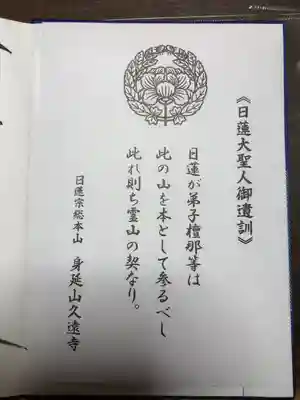 《日蓮大聖人御遺訓》
日蓮が弟子檀那等は
此の山を本として参るべし
此れ則ち霊山の契なり。
日蓮宗総本山　身延山久遠寺